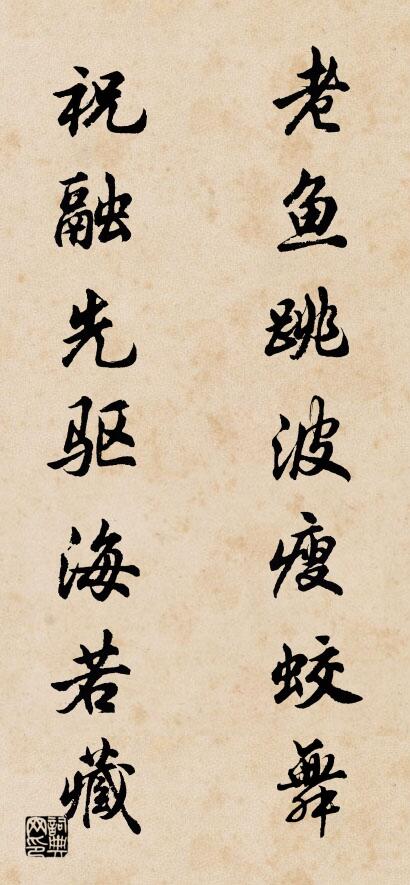 老鱼跳波瘦蛟舞
祝融先驱海若藏
詞典网印